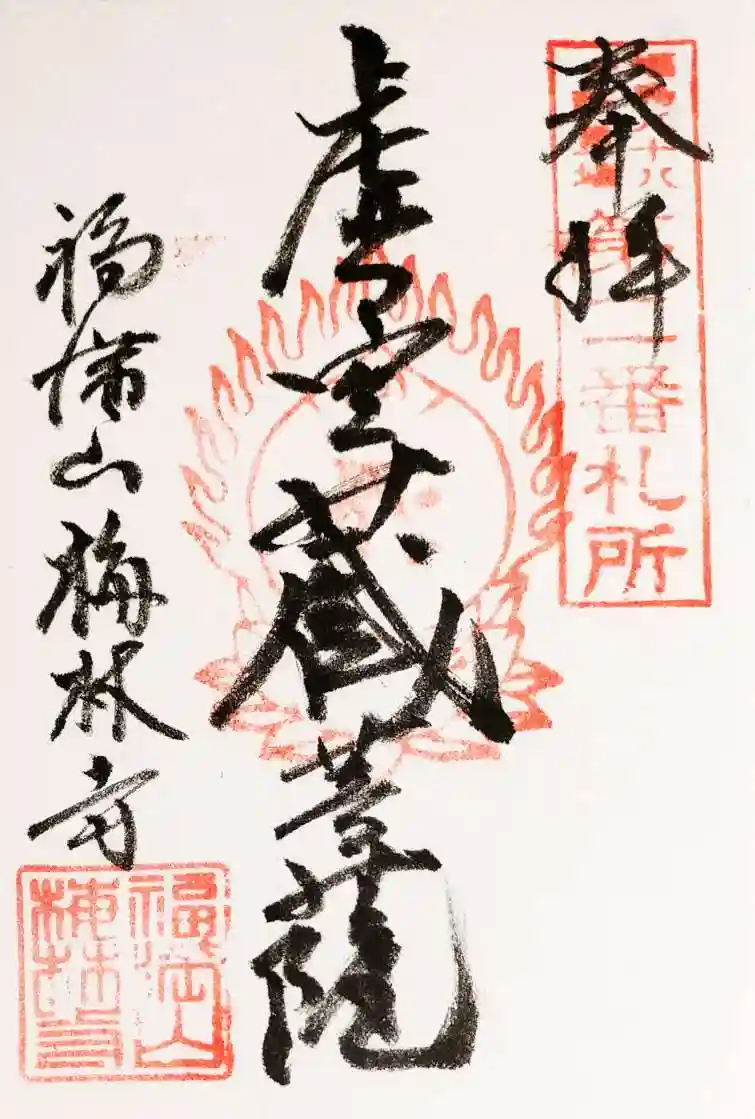 奉拝
十八
第一番札所
虚空蔵菩薩
福満山梅林寺
福満山
梅林寺